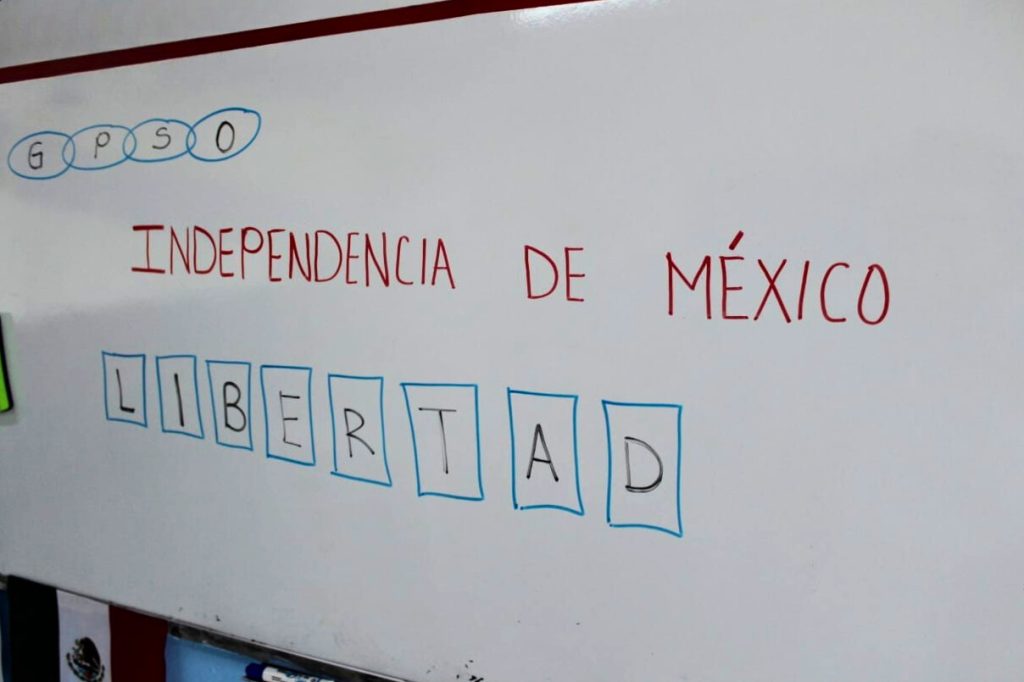 GPSO
INDEPENDENCIA DE MÉXICO
LIBERTAD